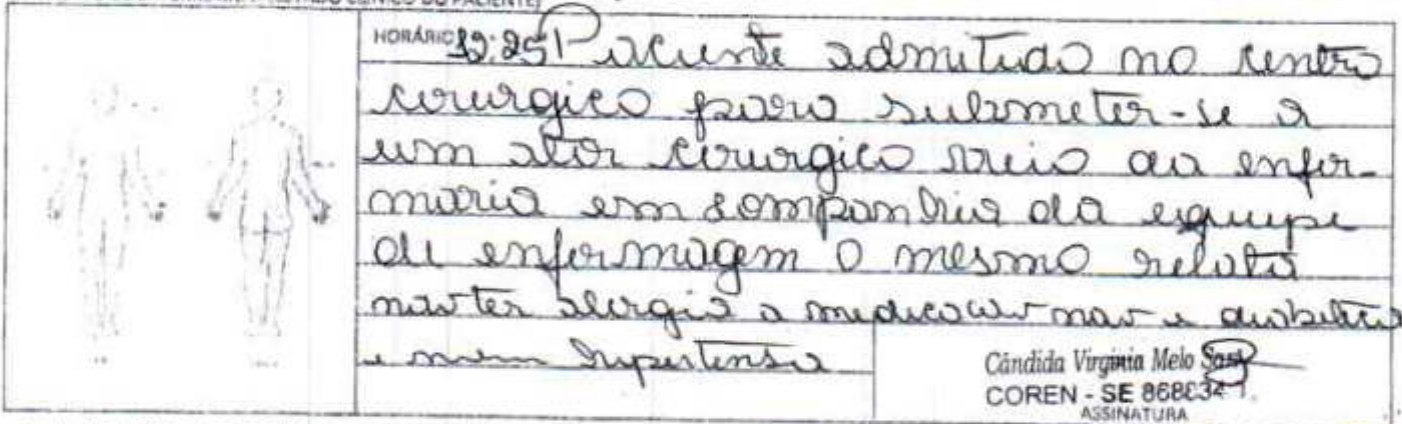 CLÍNICO DO PACIENTE)
HORÁRIO 12:25 Paciente admitido no centro
cirurgico para submeter-se a
um ator cirurgico veio da enfer-
maria em companhia da equipe
de enfermagem O mesmo relata
não ter alergia a medicação não e diabetico
e nem hipertenso
Cândida Virginia Melo
COREN - SE
ASSINATURA